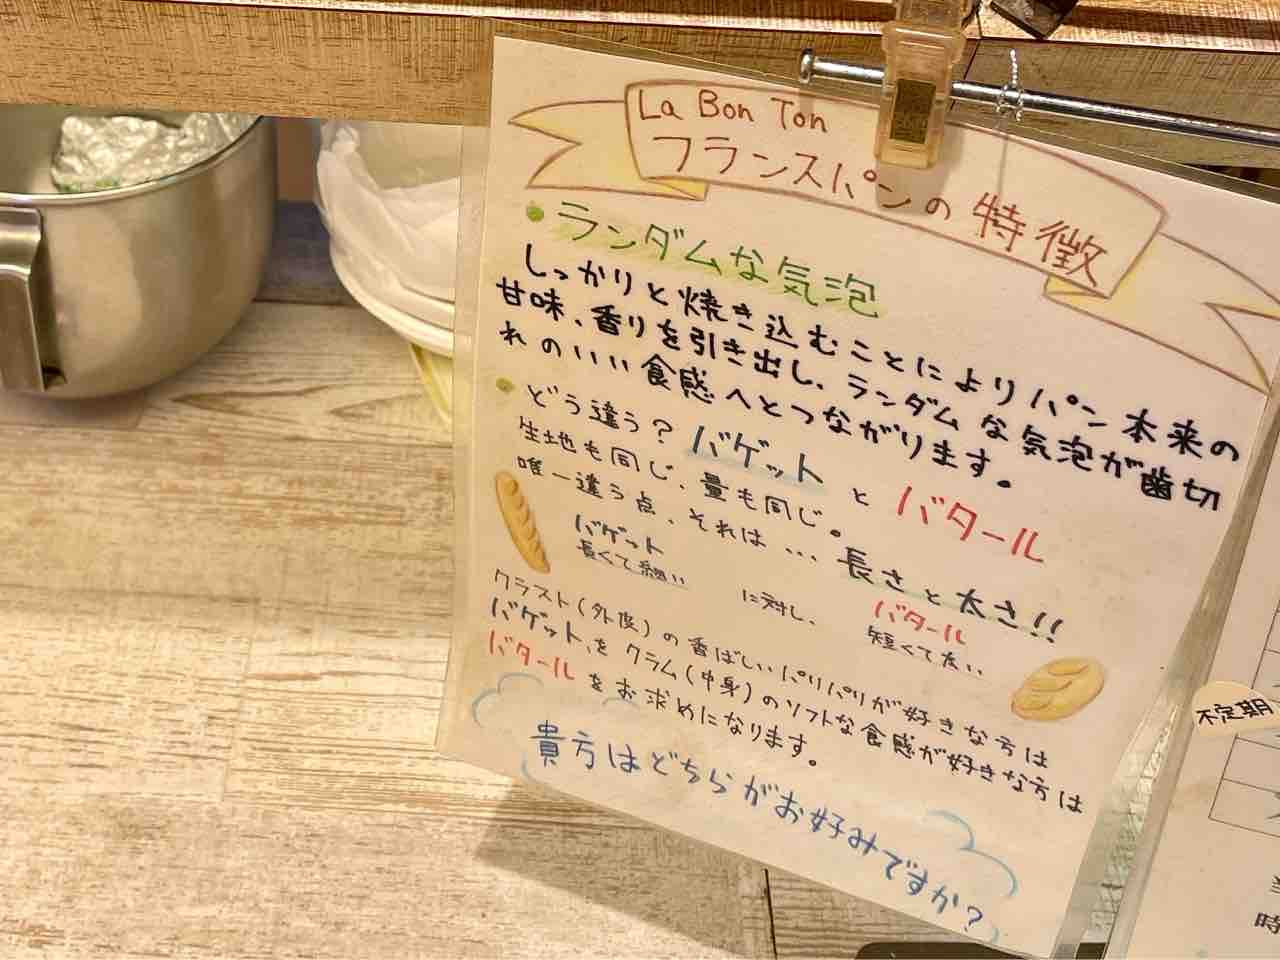 La Bon Ton
フランスパンの特徴
• ランダムな気泡
しっかりと焼き込むことによりパン本来の
甘味、香りを引き出し、ランダムな気泡が歯切
れのいい食感へとつながります。
• どう違う？ バゲット と バタール
生地も同じ、量も同じ。
唯一違う点、それは…長さと太さ!!
バゲット
長くて細い
に対し、
バタール
短くて太い
クラスト(外皮)の香ばしいパリパリが好きな方は
バゲットを クラム(中身)のソフトな食感が好きな方は
バタール をお求めになります。
貴方はどちらがお好みですか？
不定期
時